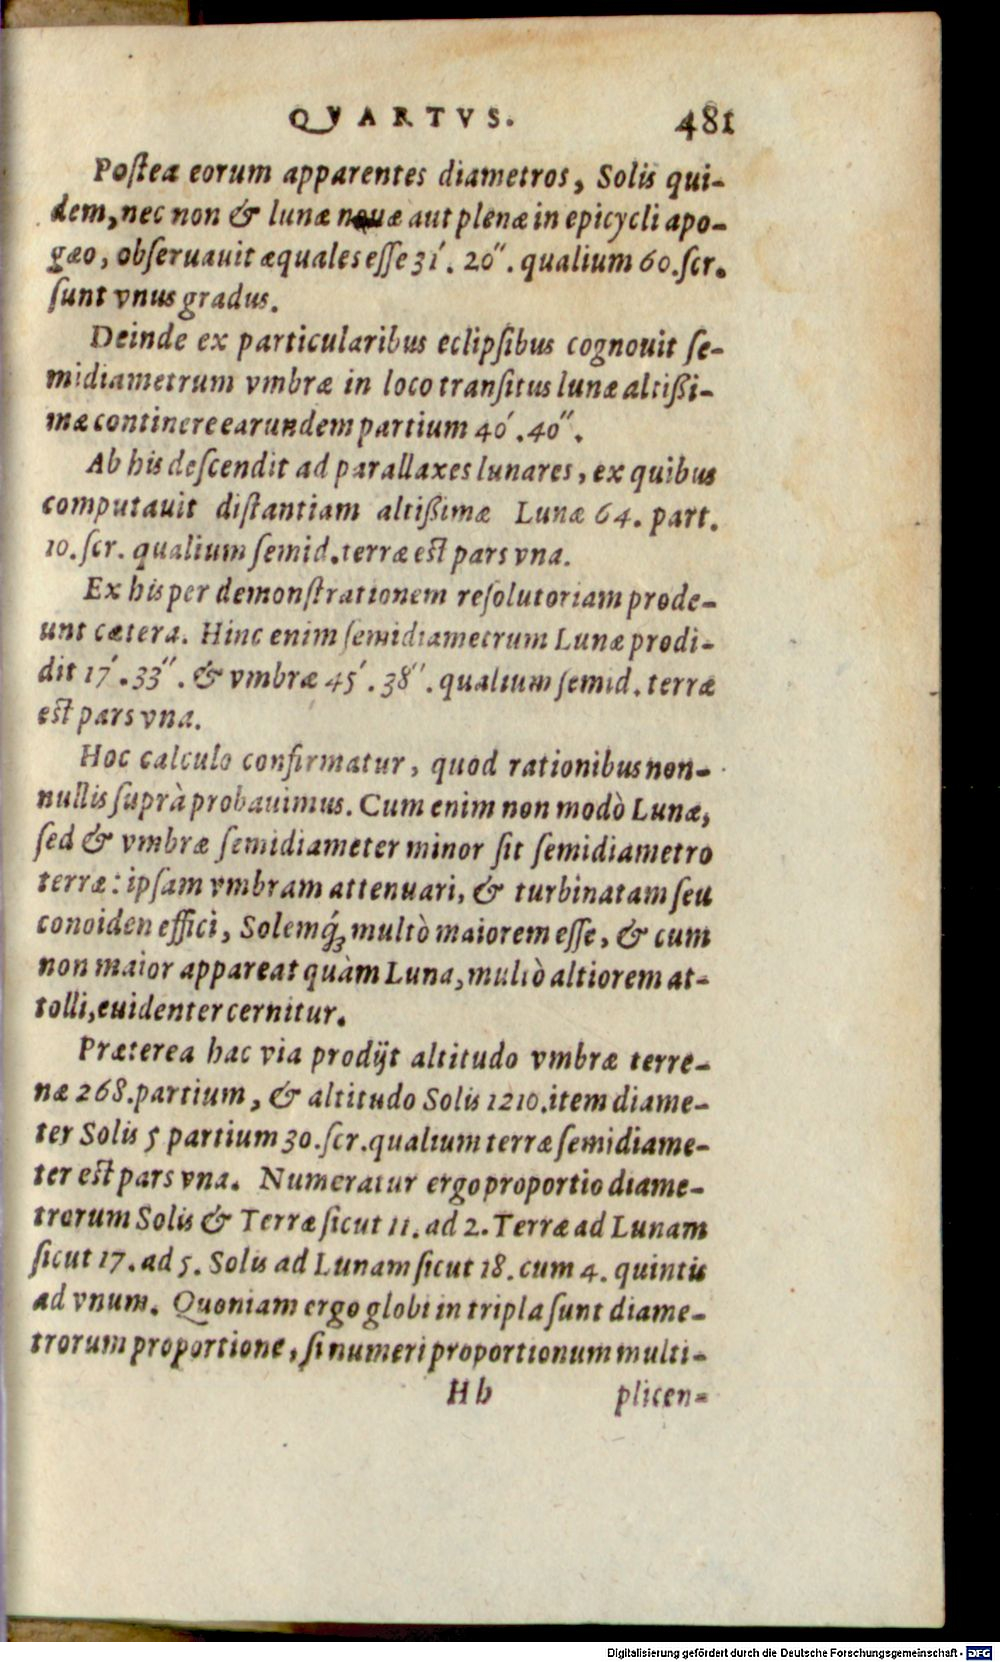 QVARTVS. 481
Postea eorum apparentes diametros, Solis qui-
dem, nec non & lunæ nouæ aut plenæ in epicycli apo-
gæo, obseruauit æquales esse 31′. 20″. qualium 60. scr.
sunt vnus gradus.
Deinde ex particularibus eclipsibus cognouit se-
midiametrum vmbræ in loco transitus lunæ altißi-
mæ continere earundem partium 40′. 40″.
Ab his descendit ad parallaxes lunares, ex quibus
computauit distantiam altißimæ Lunæ 64. part.
10. scr. qualium semid. terræ est pars vna.
Ex his per demonstrationem resolutoriam prode-
unt cætera. Hinc enim semidiametrum Lunæ prodi-
dit 17′. 33″. & vmbræ 45′. 38″. qualium semid. terræ
est pars vna.
Hoc calculo confirmatur, quod rationibus non-
nullis suprà probauimus. Cum enim non modò Lunæ,
sed & vmbræ semidiameter minor sit semidiametro
terræ: ipsam vmbram attenuari, & turbinatam seu
conoiden effici, Solemq́; multò maiorem esse, & cum
non maior appareat quàm Luna, multò altiorem at-
tolli, euidenter cernitur.
Præterea hac via prodijt altitudo vmbræ terre-
næ 268. partium, & altitudo Solis 1210. item diame-
ter Solis 5 partium 30. scr. qualium terræ semidiame-
ter est pars vna. Numeratur ergo proportio diame-
trorum Solis & Terræ sicut 11. ad 2. Terræ ad Lunam
sicut 17. ad 5. Solis ad Lunam sicut 18. cum 4. quintis
ad vnum. Quoniam ergo globi in tripla sunt diame-
trorum proportione, si numeri proportionum multi-
Hh plicen-
Digitalisierung gefördert durch die Deutsche Forschungsgemeinschaft - DFG